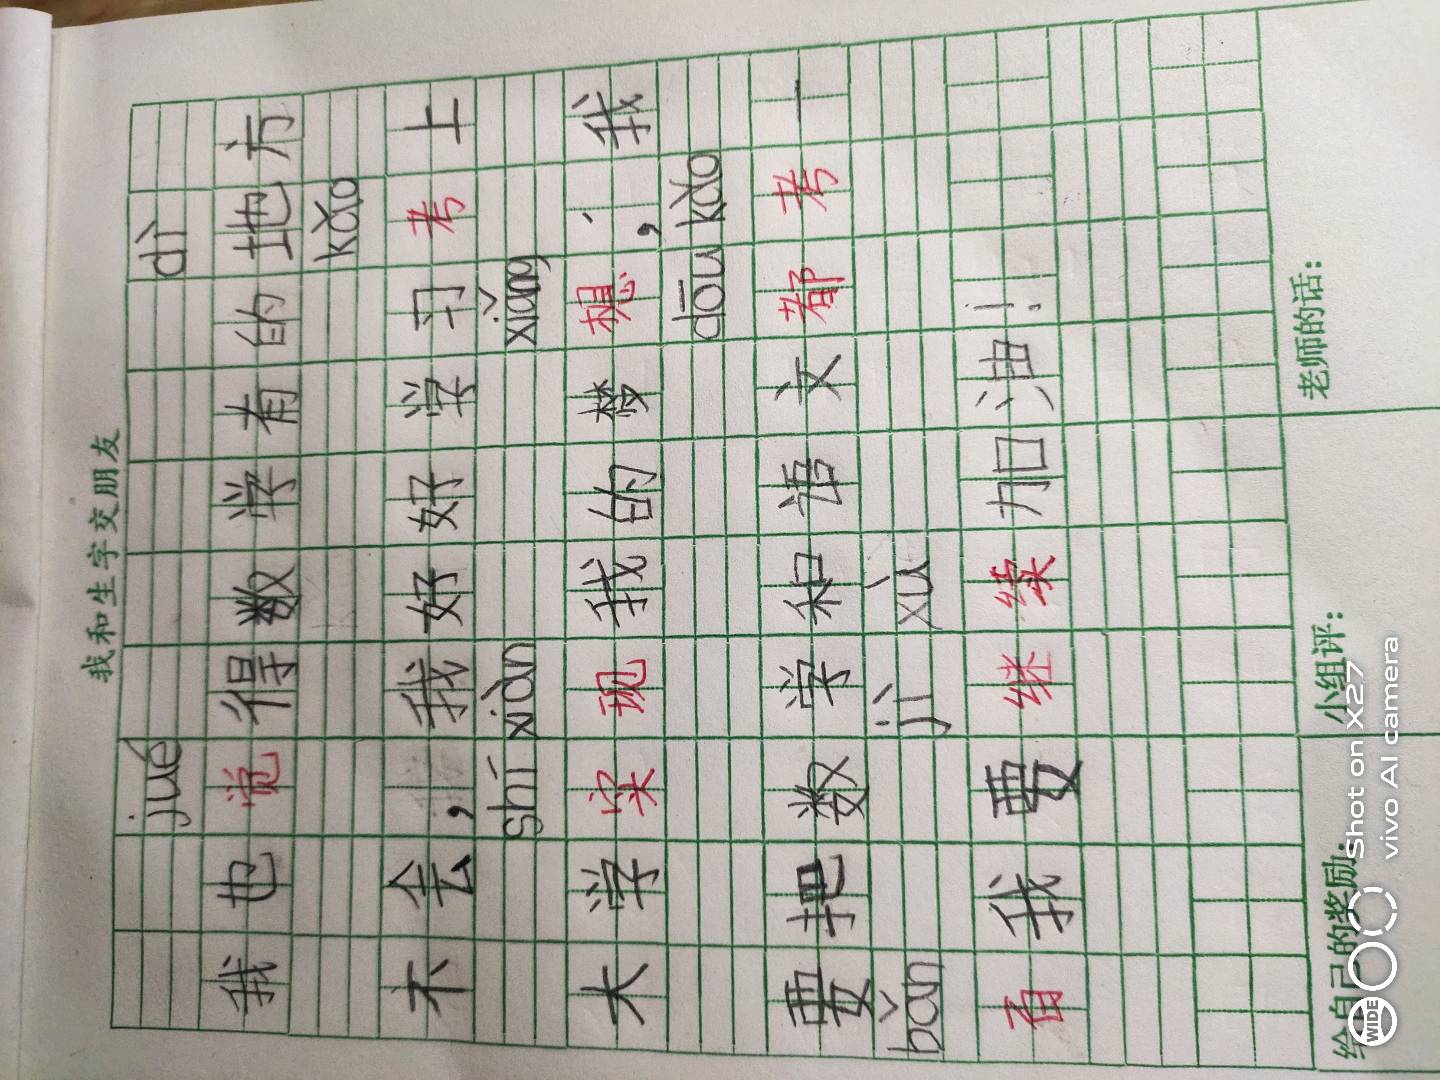 我和生字交朋友
jué dì
我也觉得数学有的地方
kǎo
不会，我好好学习考上
shí xiàn xiǎng
大学实现我的梦想，我
dōu kǎo
要把数学和语文都考一
bǎn jì xù
百我要继续加油！
给自己的奖励： 小组评： 老师的话：
WIDE
Shot on X27
vivo AI camera